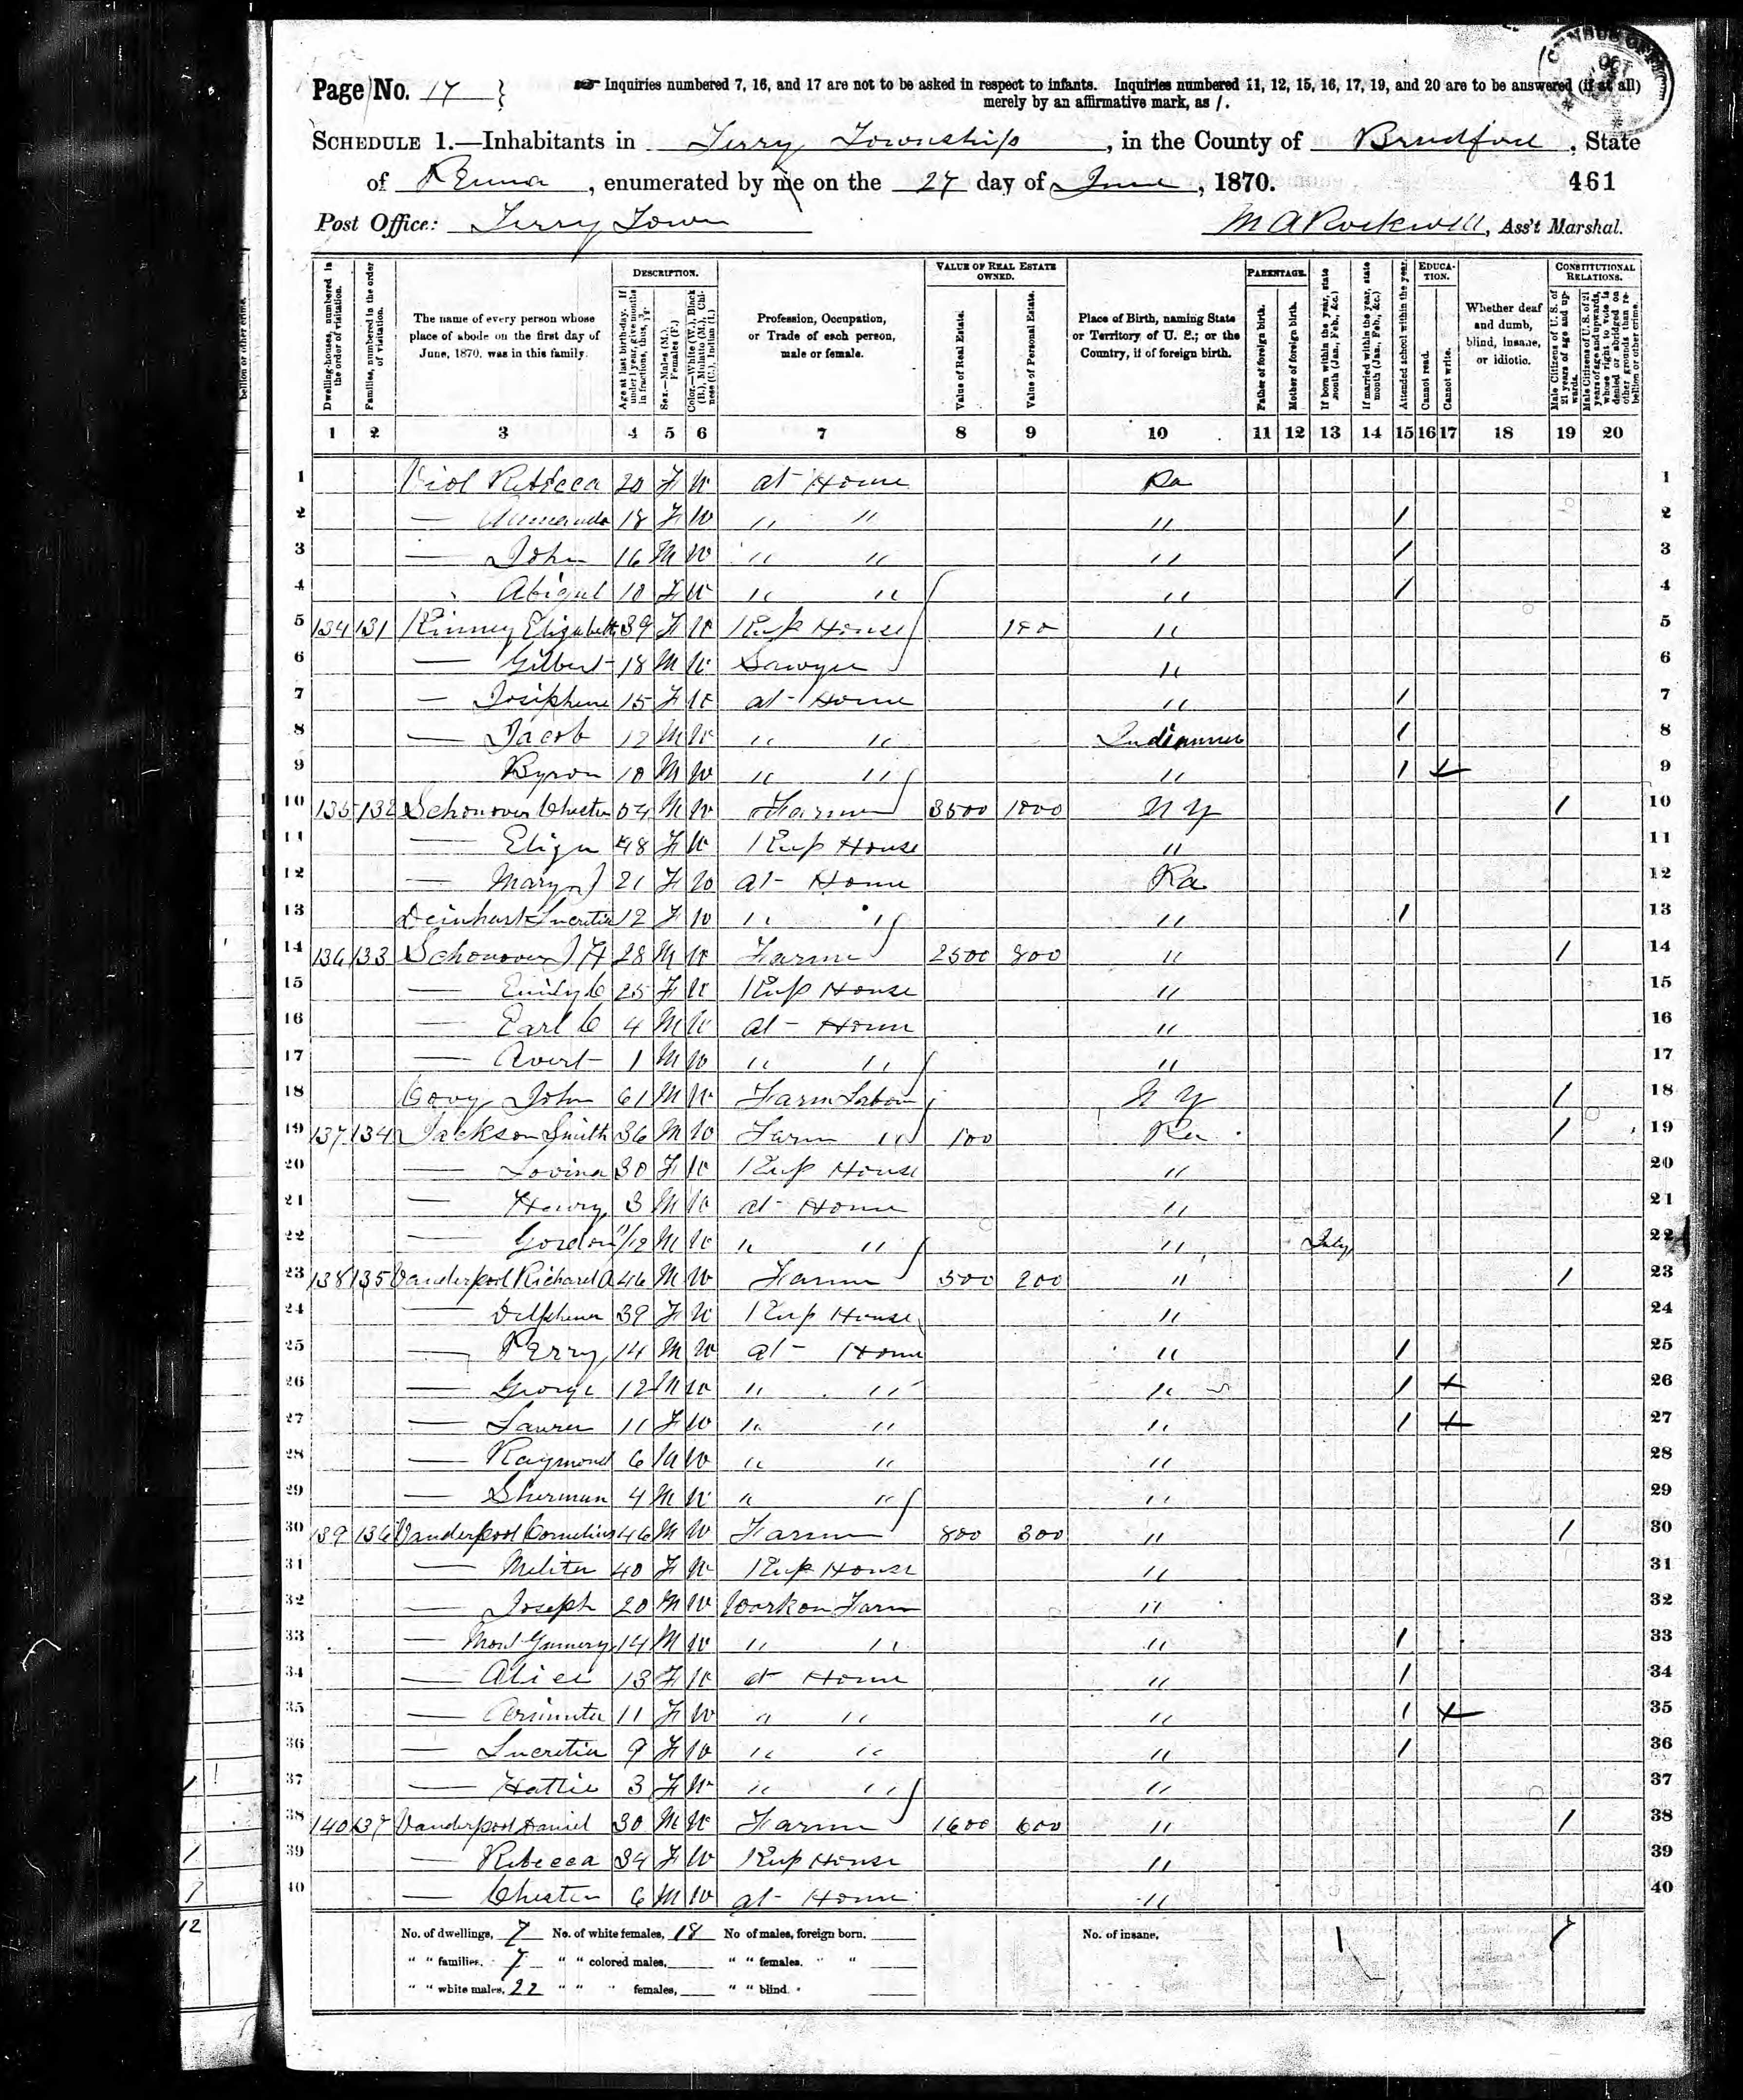 Page No. 17
Inquiries numbered 7, 16, and 17 are not to be asked in respect to infants. Inquiries numbered 11, 12, 15, 16, 17, 19, and 20 are to be answered (if at all)
merely by an affirmative mark, as /.
SCHEDULE 1.—Inhabitants in Terry Township, in the County of Bradford, State
of Penna, enumerated by me on the 27 day of June, 1870. 461
Post Office: Terry Town M A Rockwell, Ass't Marshal.
DESCRIPTION. VALUE OF REAL ESTATE OWNED. PARENTAGE. EDUCATION. CONSTITUTIONAL RELATIONS.
Dwelling-houses, numbered in the order of visitation.
Families, numbered in the order of visitation.
The name of every person whose place of abode on the first day of June, 1870, was in this family.
Age at last birth-day. If under 1 year, give months in fractions, thus, 3/12.
Sex.—Males (M.), Females (F.)
Color.—White (W.), Black (B.), Mulatto (M.), Chinese (C.), Indian (I.)
Profession, Occupation, or Trade of each person, male or female.
Value of Real Estate.
Value of Personal Estate.
Place of Birth, naming State or Territory of U. S.; or the Country, if of foreign birth.
Father of foreign birth.
Mother of foreign birth.
If born within the year, state month (Jan., Feb., &c.)
If married within the year, state month (Jan., Feb., &c.)
Attended school within the year.
Cannot read.
Cannot write.
Whether deaf and dumb, blind, insane, or idiotic.
Male Citizens of U. S. of 21 years of age and upwards.
Male Citizens of U. S. of 21 years of age and upwards, whose right to vote is denied or abridged on other grounds than rebellion or other crime.
1 2 3 4 5 6 7 8 9 10 11 12 13 14 15 16 17 18 19 20
1 Viol Rebecca 20 F W at Home Pa 1
2 — 18 F W " " " / 2
3 — John 16 M W " " " / 3
4 Abigal 10 F W " " " / 4
5 134 131 Kinney Elizabeth 39 F W Keep House 100 " 5
6 — Gilbert 18 M W Sawyer " 6
7 — Josephene 15 F W at Home " / 7
8 — Jacob 12 M W " " Indianna / 8
9 Byron 10 M W " " " / + 9
10 135 132 Schonover Chester 54 M W Farmer 3500 1000 N Y / 10
11 — Eliza 48 F W Keep House " 11
12 — Mary J 21 F W at Home Pa 12
13 Lucretia 12 F W " " " / 13
14 136 133 Schonover J H 28 M W Farmer 2500 800 " / 14
15 — Emily C 25 F W Keep House " 15
16 — Earl C 4 M W at Home " 16
17 — Avert 1 M W " " " 17
18 John 61 M W Farm Labor N Y / 18
19 137 134 Jackson Smith 36 M W Farm " 100 Pa / 19
20 — Lovina 30 F W Keep House " 20
21 — Henry 3 M W at Home " 21
22 — Gordon 11/12 M W " " " July 22
23 138 135 Vanderpool Richard A 46 M W Farmer 500 200 " / 23
24 — Delphena 39 F W Keep House " 24
25 — Perry 14 M W at Home " / 25
26 — George 12 M W " " " / + 26
27 — Laura 11 F W " " " / + 27
28 — Raymond 6 M W " " " 28
29 — Sherman 4 M W " " " 29
30 139 136 Vanderpool Cornelius 46 M W Farmer 800 300 " / 30
31 — Militia 40 F W Keep House " 31
32 — Joseph 20 M W Work on Farm " 32
33 — Mont Gumery 14 M W " " " / 33
34 — Alice 13 F W at Home " / 34
35 — 11 F W " " " / + 35
36 — Lucretia 9 F W " " " / 36
37 — Hattie 3 F W " " " 37
38 140 137 Vanderpool Daniel 30 M W Farmer 1600 600 " / 38
39 — Rebecca 34 F W Keep House " 39
40 — Chester 6 M W at Home " 40
No. of dwellings, 7 No. of white females, 18 No of males, foreign born, No. of insane, 1 7
" " families, 7 " " colored males, " " females, " "
" " white males, 22 " " " females, " " blind. "